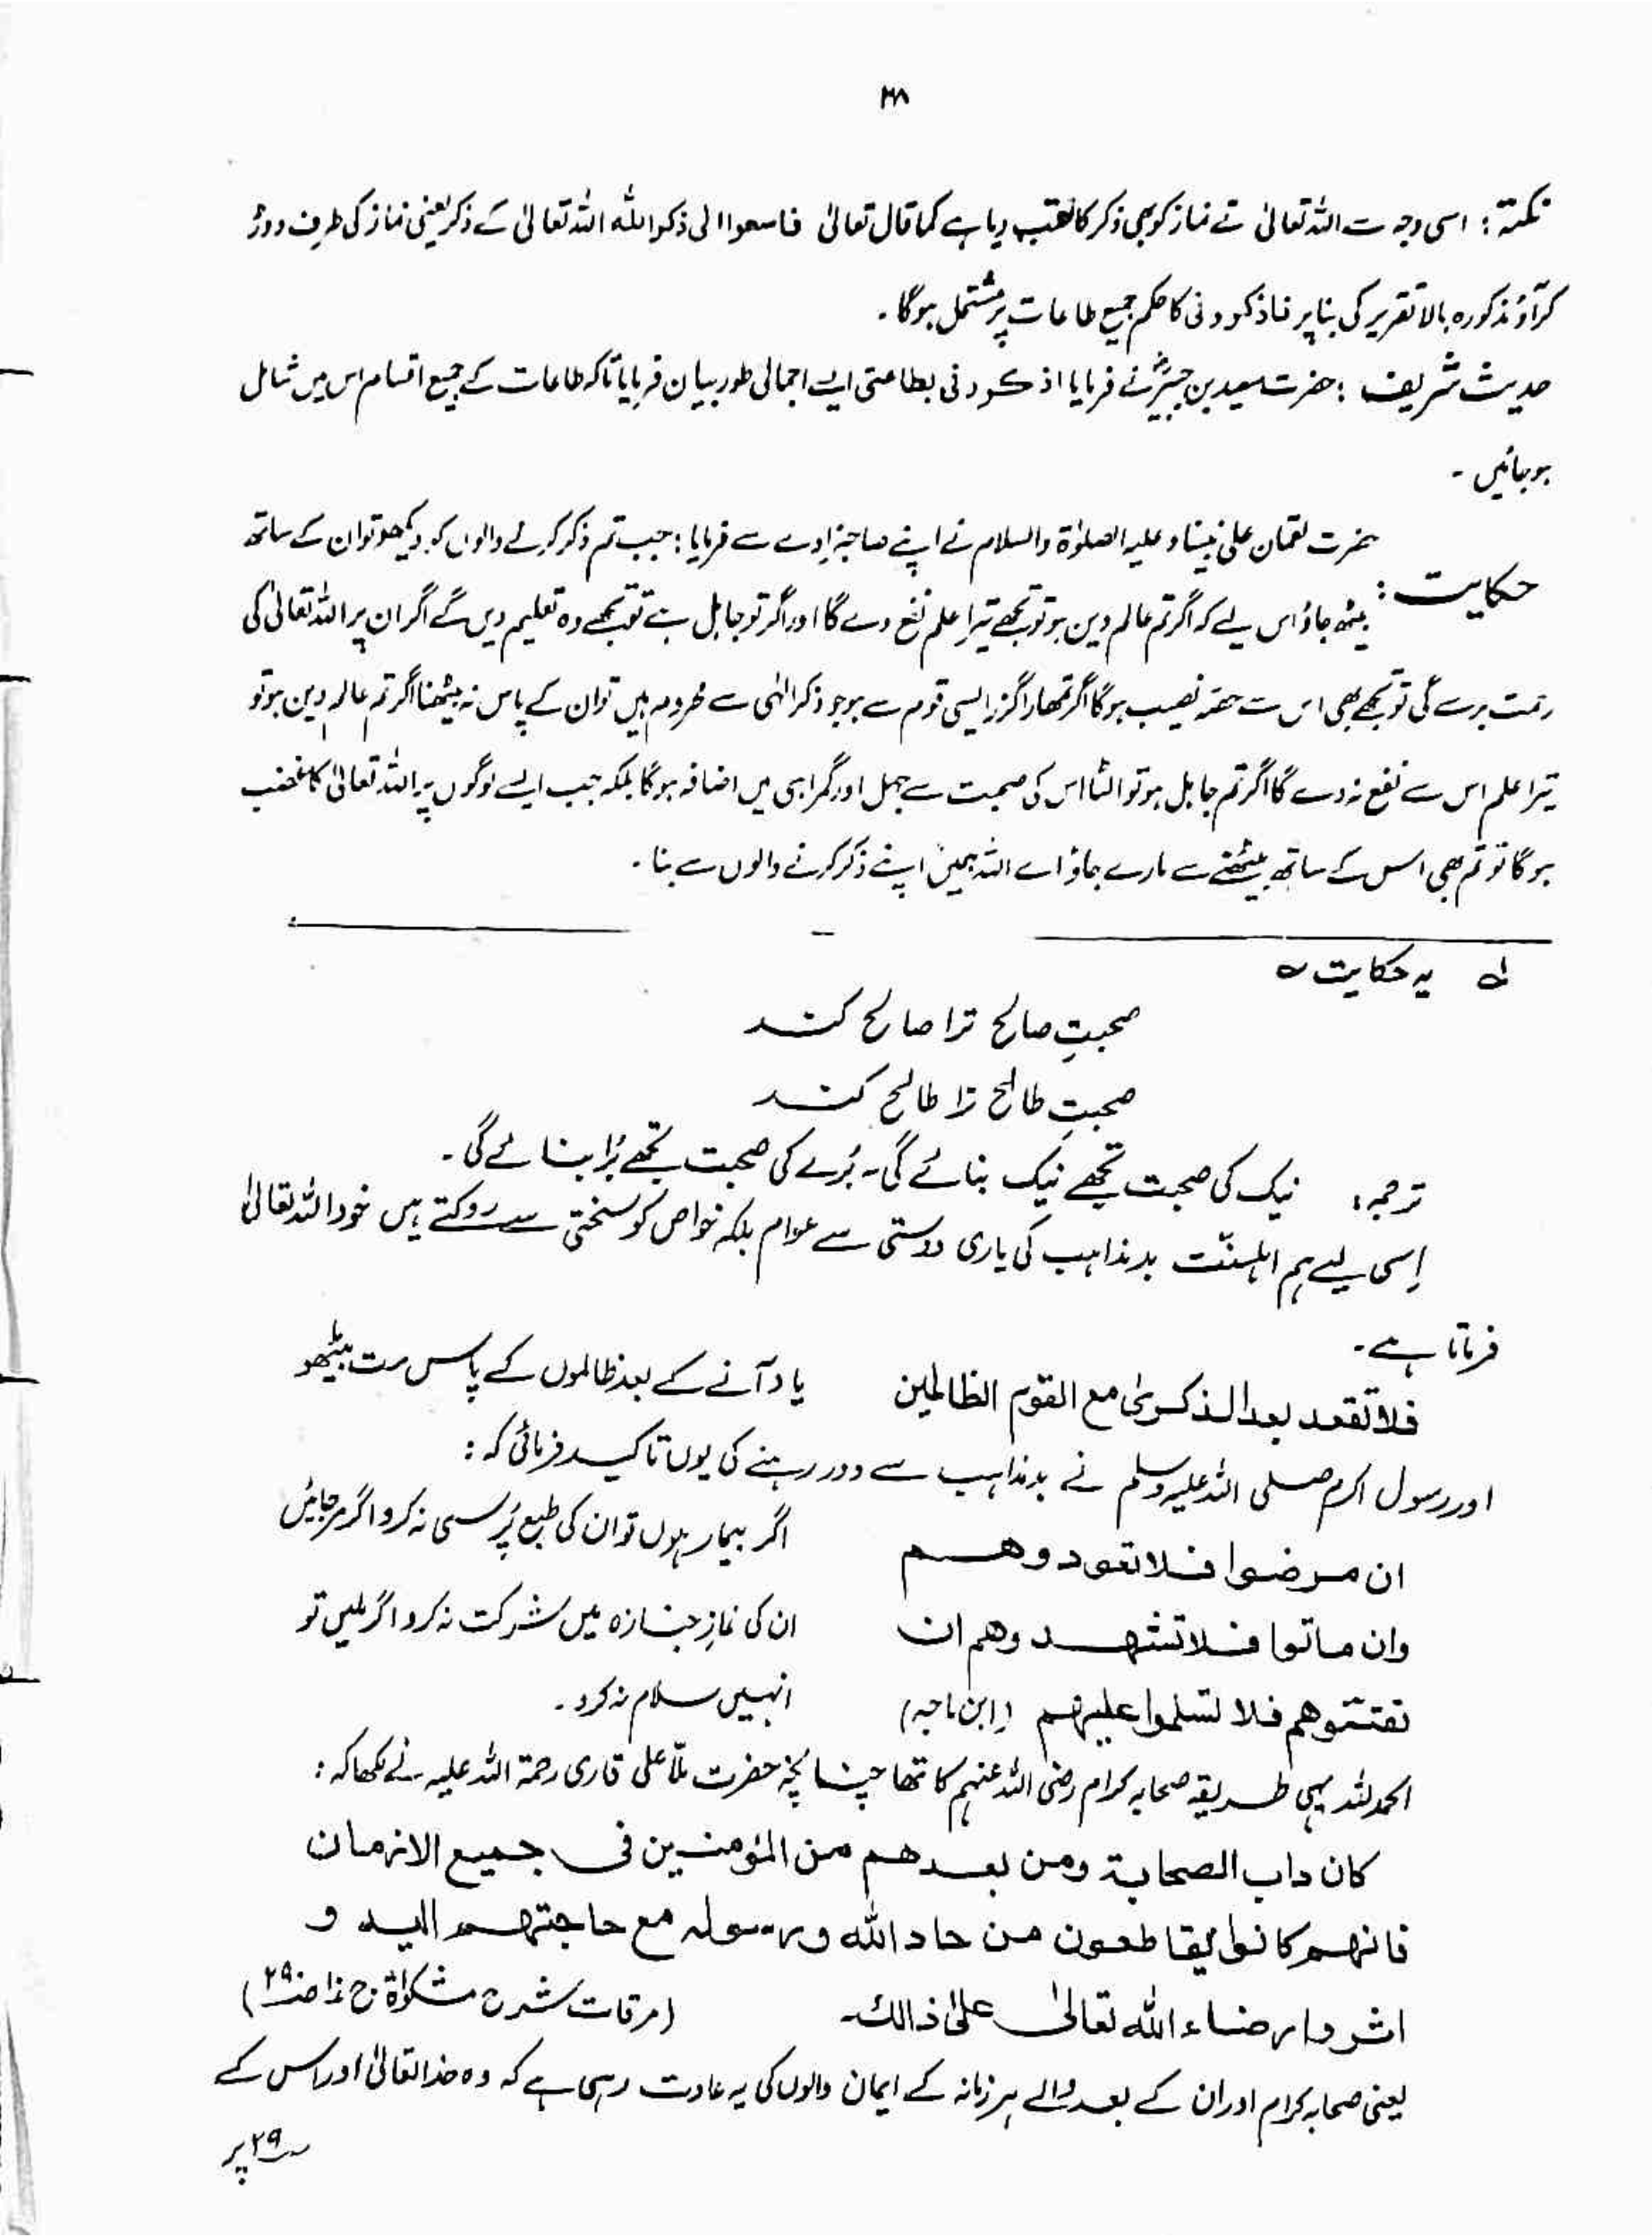 ۲۸
نکتہ: اسی وجہ سے اللہ تعالیٰ نے نماز کو بھی ذکر کا لقب دیا ہے کما قال تعالیٰ فاسعوا الی ذکر اللہ اللہ تعالیٰ کے ذکر یعنی نماز کی طرف دوڑ
کر آؤ مذکورہ بالا تقریر کی بنا پر فاذکرونی کا حکم جمیع طاعات پر مشتمل ہوگا۔
حدیث شریف: حضرت سعید بن جبیرؓ نے فرمایا اذکرونی بطاعتی ایسے اجمالی طور بیان فرمایا تاکہ طاعات کے جمیع اقسام اس میں شامل
ہوجائیں۔
حضرت لقمان علیٰ نبینا وعلیہ الصلوٰۃ والسلام نے اپنے صاحبزادے سے فرمایا: جب تم ذکر کرنے والوں کو دیکھو تو ان کے ساتھ
حکایت:
بیٹھ جاؤ اس لیے کہ اگر تم عالم دین ہو تو تجھے تیرا علم نفع دے گا اور اگر تو جاہل ہے تو تجھے وہ تعلیم دیں گے اگر ان پر اللہ تعالیٰ کی
رحمت برسے گی تو تجھے بھی اس سے حصہ نصیب ہوگا اگر تمھارا گزر ایسی قوم سے ہو جو ذکر الٰہی سے محروم ہیں تو ان کے پاس نہ بیٹھنا اگر تم عالم دین ہو تو
تیرا علم اس سے نفع نہ دے گا اگر تم جاہل ہو تو الٹا اس کی صحبت سے جہل اور گمراہی میں اضافہ ہوگا بلکہ جب ایسے لوگوں پر اللہ تعالیٰ کا غضب
ہوگا تو تم بھی اس کے ساتھ بیٹھنے سے مارے جاؤ اے اللہ ہمیں اپنے ذکر کرنے والوں سے بنا۔
لہ یہ حکایت ؎
صحبتِ صالح ترا صالح کند
صحبتِ طالح ترا طالح کند
ترجمہ: نیک کی صحبت تجھے نیک بنائے گی۔ بُرے کی صحبت تجھے بُرا بنائے گی۔
اِسی لیے ہم اہلسنّت بدمذاہب کی یاری دوستی سے عوام بلکہ خواص کو سختی سے روکتے ہیں خود اللہ تعالیٰ
فرماتا ہے۔
فلا تقعد بعد الذکریٰ مع القوم الظالمین یاد آنے کے بعد ظالموں کے پاس مت بیٹھو
اور رسول اکرم صلی اللہ علیہ وسلم نے بدمذاہب سے دور رہنے کی یوں تاکید فرمائی کہ:
ان مرضوا فلا تعودوهم اگر بیمار ہوں تو ان کی طبع پُرسی نہ کرو اگر مرجائیں
وان ماتوا فلا تشهدوهم ان ان کی نمازِ جنازہ میں شرکت نہ کرو اگر ملیں تو
لقیتموهم فلا تسلموا علیهم (ابن ماجہ) انہیں سلام نہ کرو۔
الحمدللہ یہی طریقہ صحابہ کرام رضی اللہ عنہم کا تھا چنانچہ حضرت ملّا علی قاری رحمۃ اللہ علیہ نے لکھا کہ:
کان داب الصحابة ومن بعدهم من المؤمنین فی جمیع الازمان
فانهم کانوا یقاطعون من حاد الله ورسوله مع حاجتهم الیه و
اثروا رضاء الله تعالیٰ علیٰ ذالك۔ (مرقات شرح مشکوٰۃ ج ۱۰ ص ۲۹)
یعنی صحابہ کرام اور ان کے بعد والے ہر زمانہ کے ایمان والوں کی یہ عادت رہی ہے کہ وہ خدا تعالیٰ اور اس کے
۲۹ پر